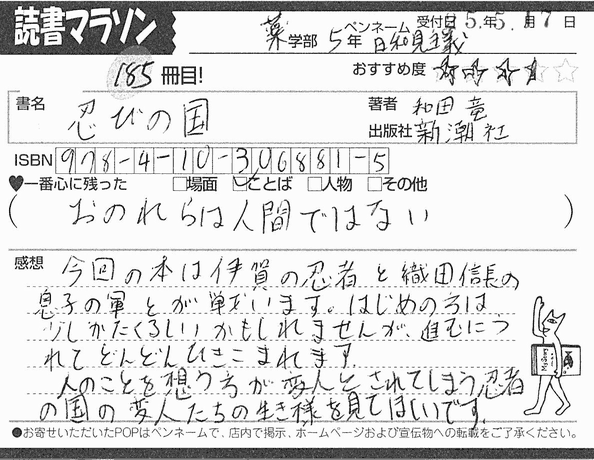 読書マラソン
薬学部 5年 ペンネーム 日和見主義 受付日 5.年5.月17日
185冊目!
おすすめ度
書名 忍びの国
著者 和田 竜
出版社 新潮社
ISBN 978-4-10-306881-5
♥一番心に残った □場面 ☑ことば □人物 □その他
(おのれらは人間ではない)
感想
今回の本は伊賀の忍者と織田信長の
息子の軍とが戦います。はじめの方は、
少しかたくるしいかもしれませんが、進むにつ
れてどんどんひきこまれます。
人のことを想う方が変人とされてしまう忍者
の国の変人たちの生き様を見てほしいです。
●お寄せいただいたPOPはペンネームで、店内で掲示、ホームページおよび宣伝物への転載をご了承ください。